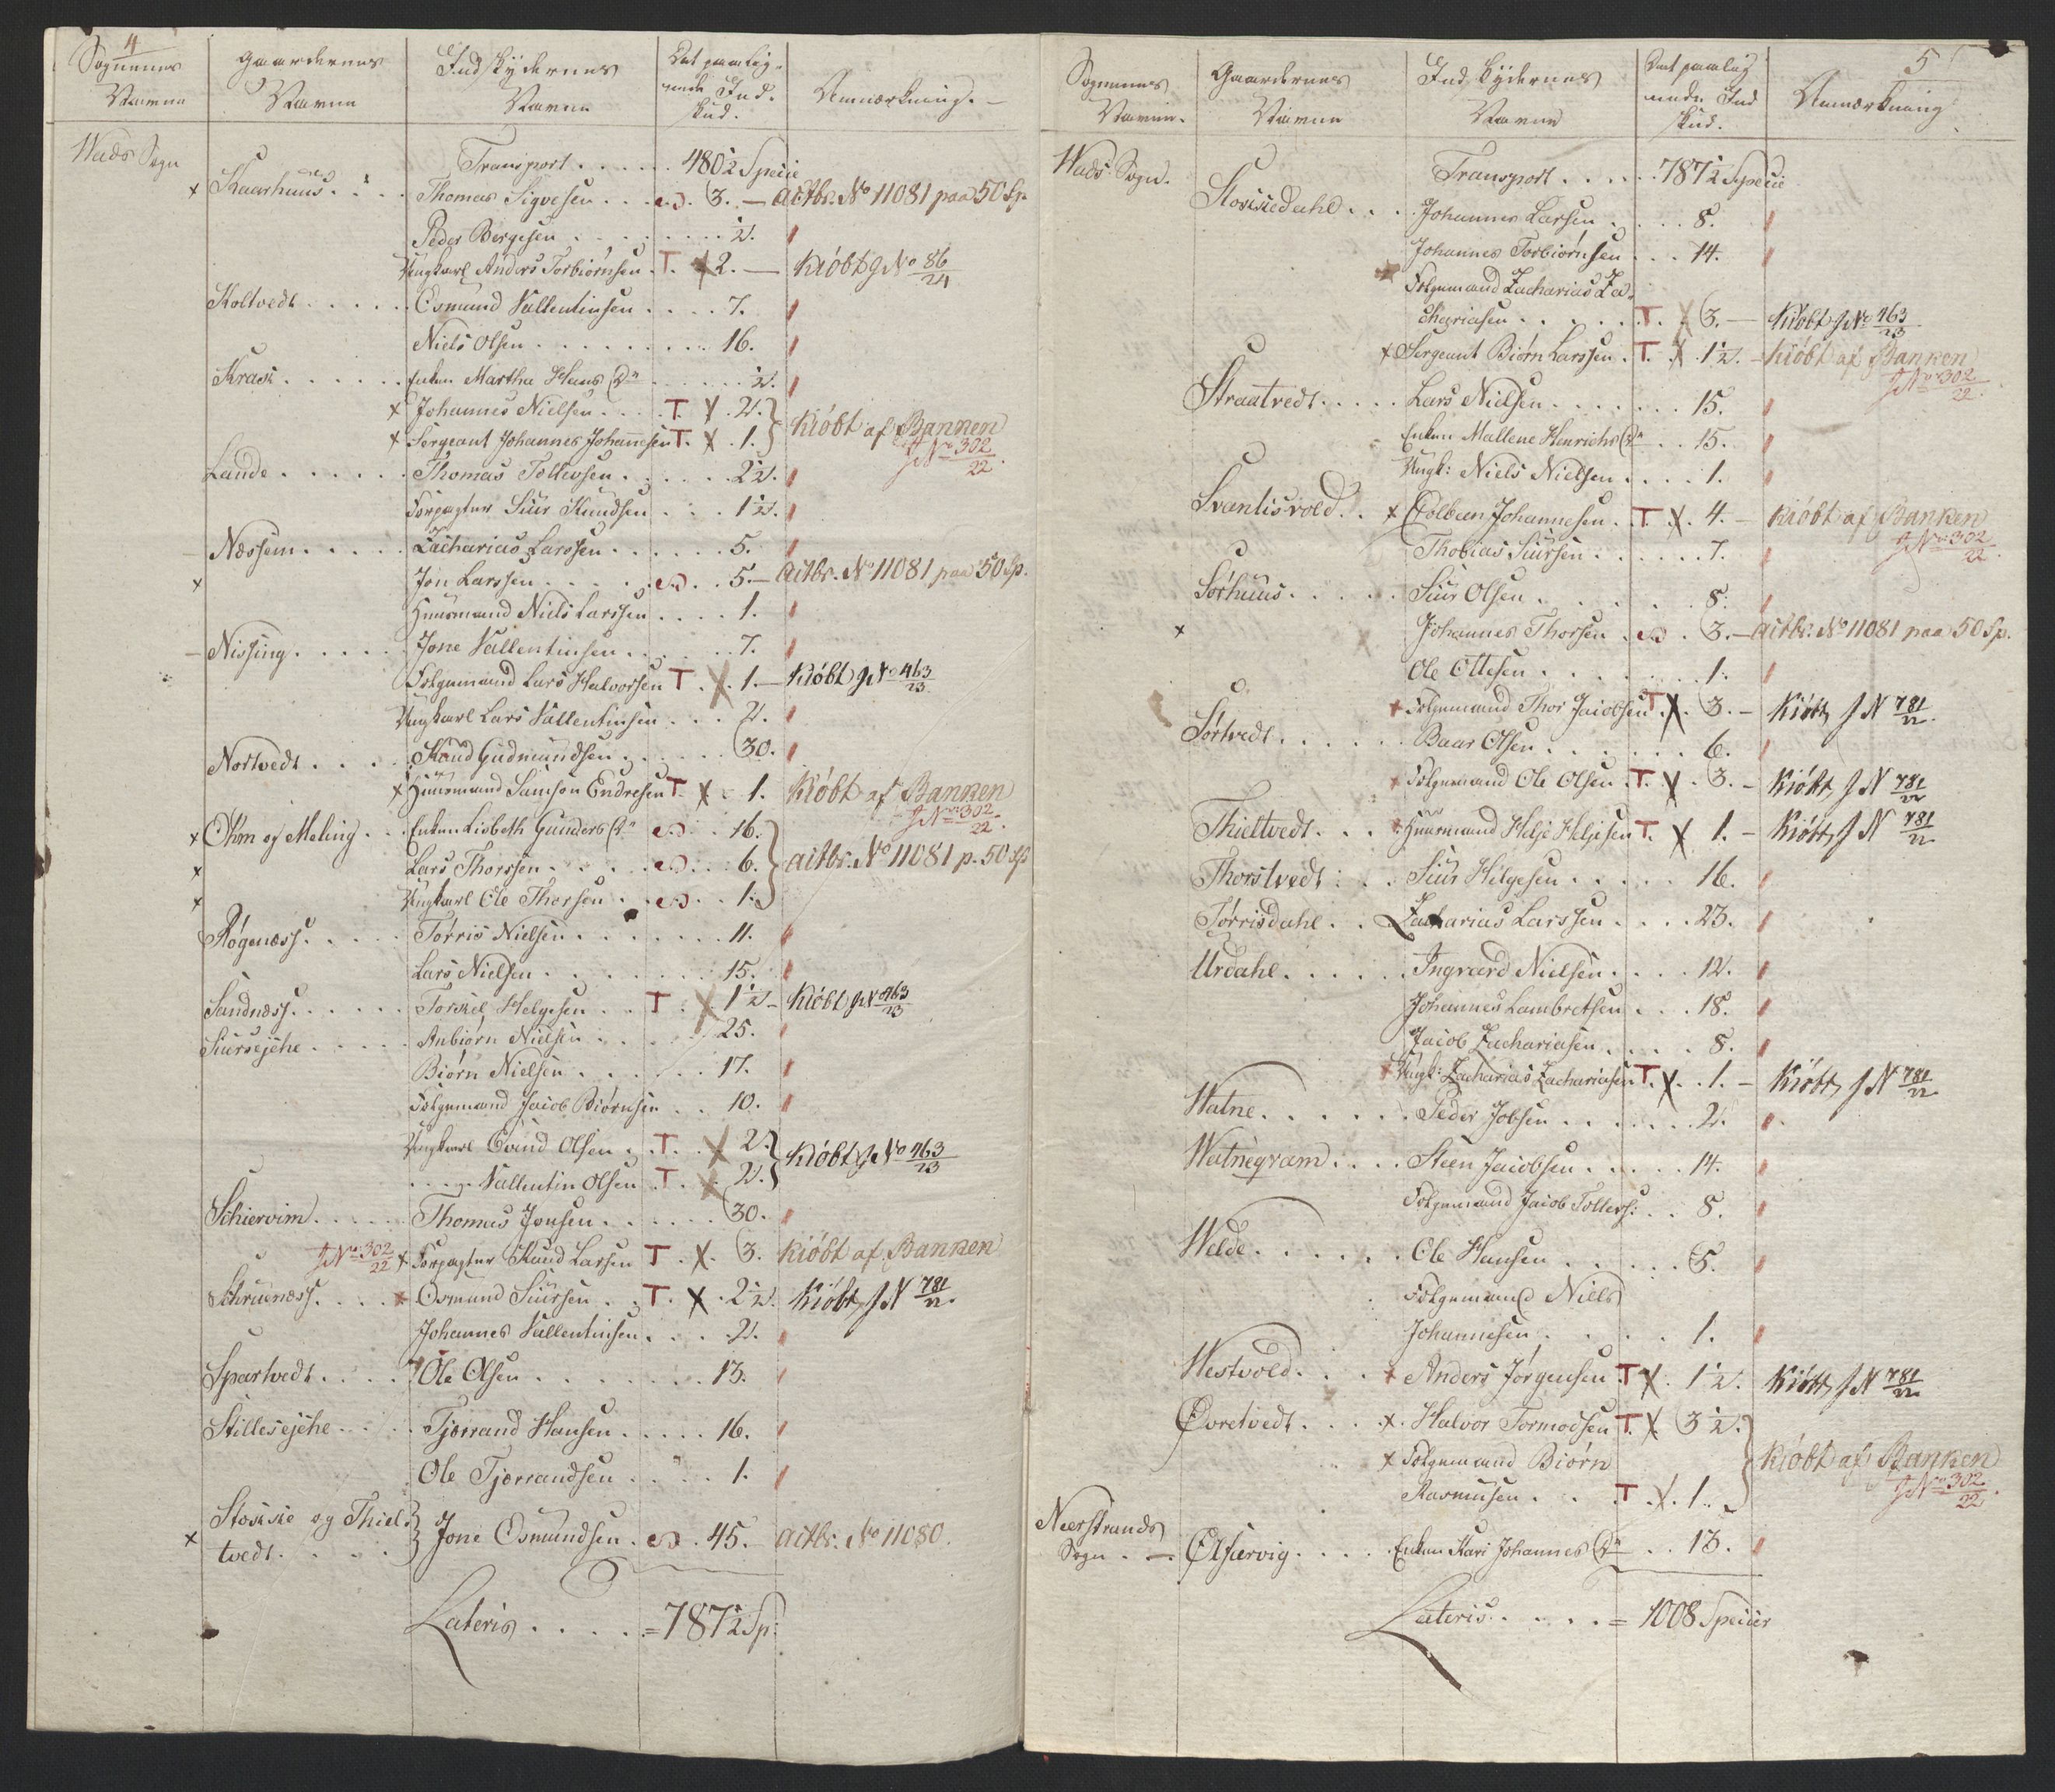 4
Sognenes Navne
Gaardernes Navne
Indskydernes Navne
Det paalignede Indskud.
Anmærkning.
Wads Sogn
Transport . . . . . 480½ Specie
Kaarhuus . . . Thomas Sigvesen . . . 3. — actbr. No 11081 paa 50 Sp.
Peder Bergesen . . . . ½.
Ungkarl Anders Torbiørnsen . T. 2. — Kiöbt J No 86/24
Koltvedt . . . . . Osmund Vallentinsen . . . . 7.
Niels Olsen . . . . . . . 16.
Krask . . . . . . Enken Martha Hans Dr . . . . ½.
x Johannes Nielsen . . . . T x . 2. }
x Sergeant Johannes Johannesen T. x . 1. } Kiöbt af Banken
J No 302/22.
Lande . . . . . . Thomas Tollevsen . . . . . 2½.
Forpagter Siur Knudsen . . . 1½.
Næssem . . . . . Zacharias Larssen . . . . . . 5.
x Jon Larssen . . . . . 5. — actbr. No 11081 paa 50 Sp.
Huusmand Niels Larssen . . . . 1.
Nissing . . . . . Jone Vallentinsen . . . . . . 7.
Folgemand Lars Halvorsen T . x . 1. — Kiöbt J No 463/23
Ungkarl Lars Vallentinsen . . . 2.
Nortvedt . . . . Knud Gudmundsen . . . . . 30.
x Huusmand Samson Endresen T. x . 1. Kiöbt af Banken
J No 302/22.
x Ohm og Meling . . Enken Lisbeth Gunders Dr . . 16. }
x Lars Thorssen . . . . . 6. } actbr. No 11081 p. 50 Sp
x Ungkarl Ole Thorsen . . . 1. }
Røgenæss . . . . Tørris Nielsen . . . . . . . 11.
Lars Nielsen . . . . . . . 15.
Sandnæss . . . . . . Torkel Helgesen . . T . x 1½ — Kiöbt J No 463/23
Siursejehe . . . . . Anbiørn Nielsen . . . . . 25.
Biørn Nielsen . . . . . . 17.
Folgemand Jacob Biørnsen . . 10.
Ungkarl Eivind Olsen . . T. . x 2. }
. . . . Vallentin Olsen . T . x . 2. } Kiöbt J No 463/23
Schiervim . . . . . Thomas Jonsen . . . . . . 30.
J No 302/22 x Forpagter Knud Larsen T . x . 3. Kiöbt af Banken
Schruenæss . . . . x Osmund Siursen . . T . x . 2½. Kiöbt J N 781/22.
Johannes Vallentinsen . . . . 2.
Spartvedt . . . . Ole Olsen . . . . . . . 13.
Stillesejehe . . . . Tjerrand Hansen . . . . . 16.
Ole Tjerrandsen . . . . . 1.
x Stoskie og Thiel- }
tvedt . . . . } Jone Osmundsen . . 45. — actbr. No 11080.
Lateris . . . . . = 787½ Sp:
5
Sognenes Navne.
Gaardernes Navne
Indskydernes Navne
Det paalignede Indskud.
Anmærkning
Wads Sogn.
Transport . . . . . 787½ Specie
Stoskiedahl . . . . Johannes Larsen . . . . 8.
Johannes Torbiørnsen . . . 14.
x Folgemand Zacharias Za-
chariasen . . . . . . T. . x 3. — Kiöbt J No 463/23
x Sergeant Biørn Larssen . T. x . 1½. — Kiöbt af Banken
J No 302/22.
Straatvedt . . . . . Lars Nielsen . . . . . . . 15.
Enken Mallene Henrichs Dr . . 15.
Ungk: Niels Nielsen . . . . 1.
Svantisvold . . x Colbeen Johannesen . T x . 4. — Kiöbt af Banken
J No 302/22.
Thobias Siursen . . . . . . 7.
Sørhuus . . . . . Siur Olsen . . . . . . . 8.
x Johannes Thorsen . . 3. — actbr. No 11081 paa 50 Sp.
Ole Ottesen . . . . . . . 1.
x Folgemand Thor Jacobsen T x . 3. — Kiöbt J N 781/22.
Sørtvedt . . . . . . Baar Olsen . . . . . . . 6.
x Folgemand Ole Olsen . T. x . 3. — Kiöbt J N 781/22
Thieltvedt . . . . Huusmand Helje Heljesen T. x 1. — Kiöbt J N 781/22
Thorstvedt . . . Siur Hilgesen . . . . . 16.
Tørrisdahl . . Zacharias Larssen . . . . 23.
Urdahl . . . . . Ingvard Nielsen . . . . 12.
Johannes Lambretsen . . . 18.
Jacob Zachariasen . . . . . 8.
x Ungk: Zacharias Zachariasen T. x . 1. — Kiöbt J N 781/22
Watne . . . . . . Peder Jobsen . . . . . . . 2.
Watnegram . . . . Steen Jacobsen . . . . . 14.
Folgemand Jacob Tollevs: . . 8.
Welde . . . . . . Ole Hansen . . . . . . 5.
Folgemand Niels
Johannesen . . . . . . 1.
Westvold . . . x Anders Jørgensen T x . 1½. Kiöbt J N 781/22
Øvretvedt . . . . x . Halvor Tormodsen T. x 3½. }
x Folgemand Biørn
Rasmusen . . . T . x . 1. } Kiöbt af Banken
J No 302/22.
Neerstrands
Sogn . — Ølsærvig . . . . Enken Kari Johannes Dr . . 13.
Lateris . . . . . = 1008 Specier